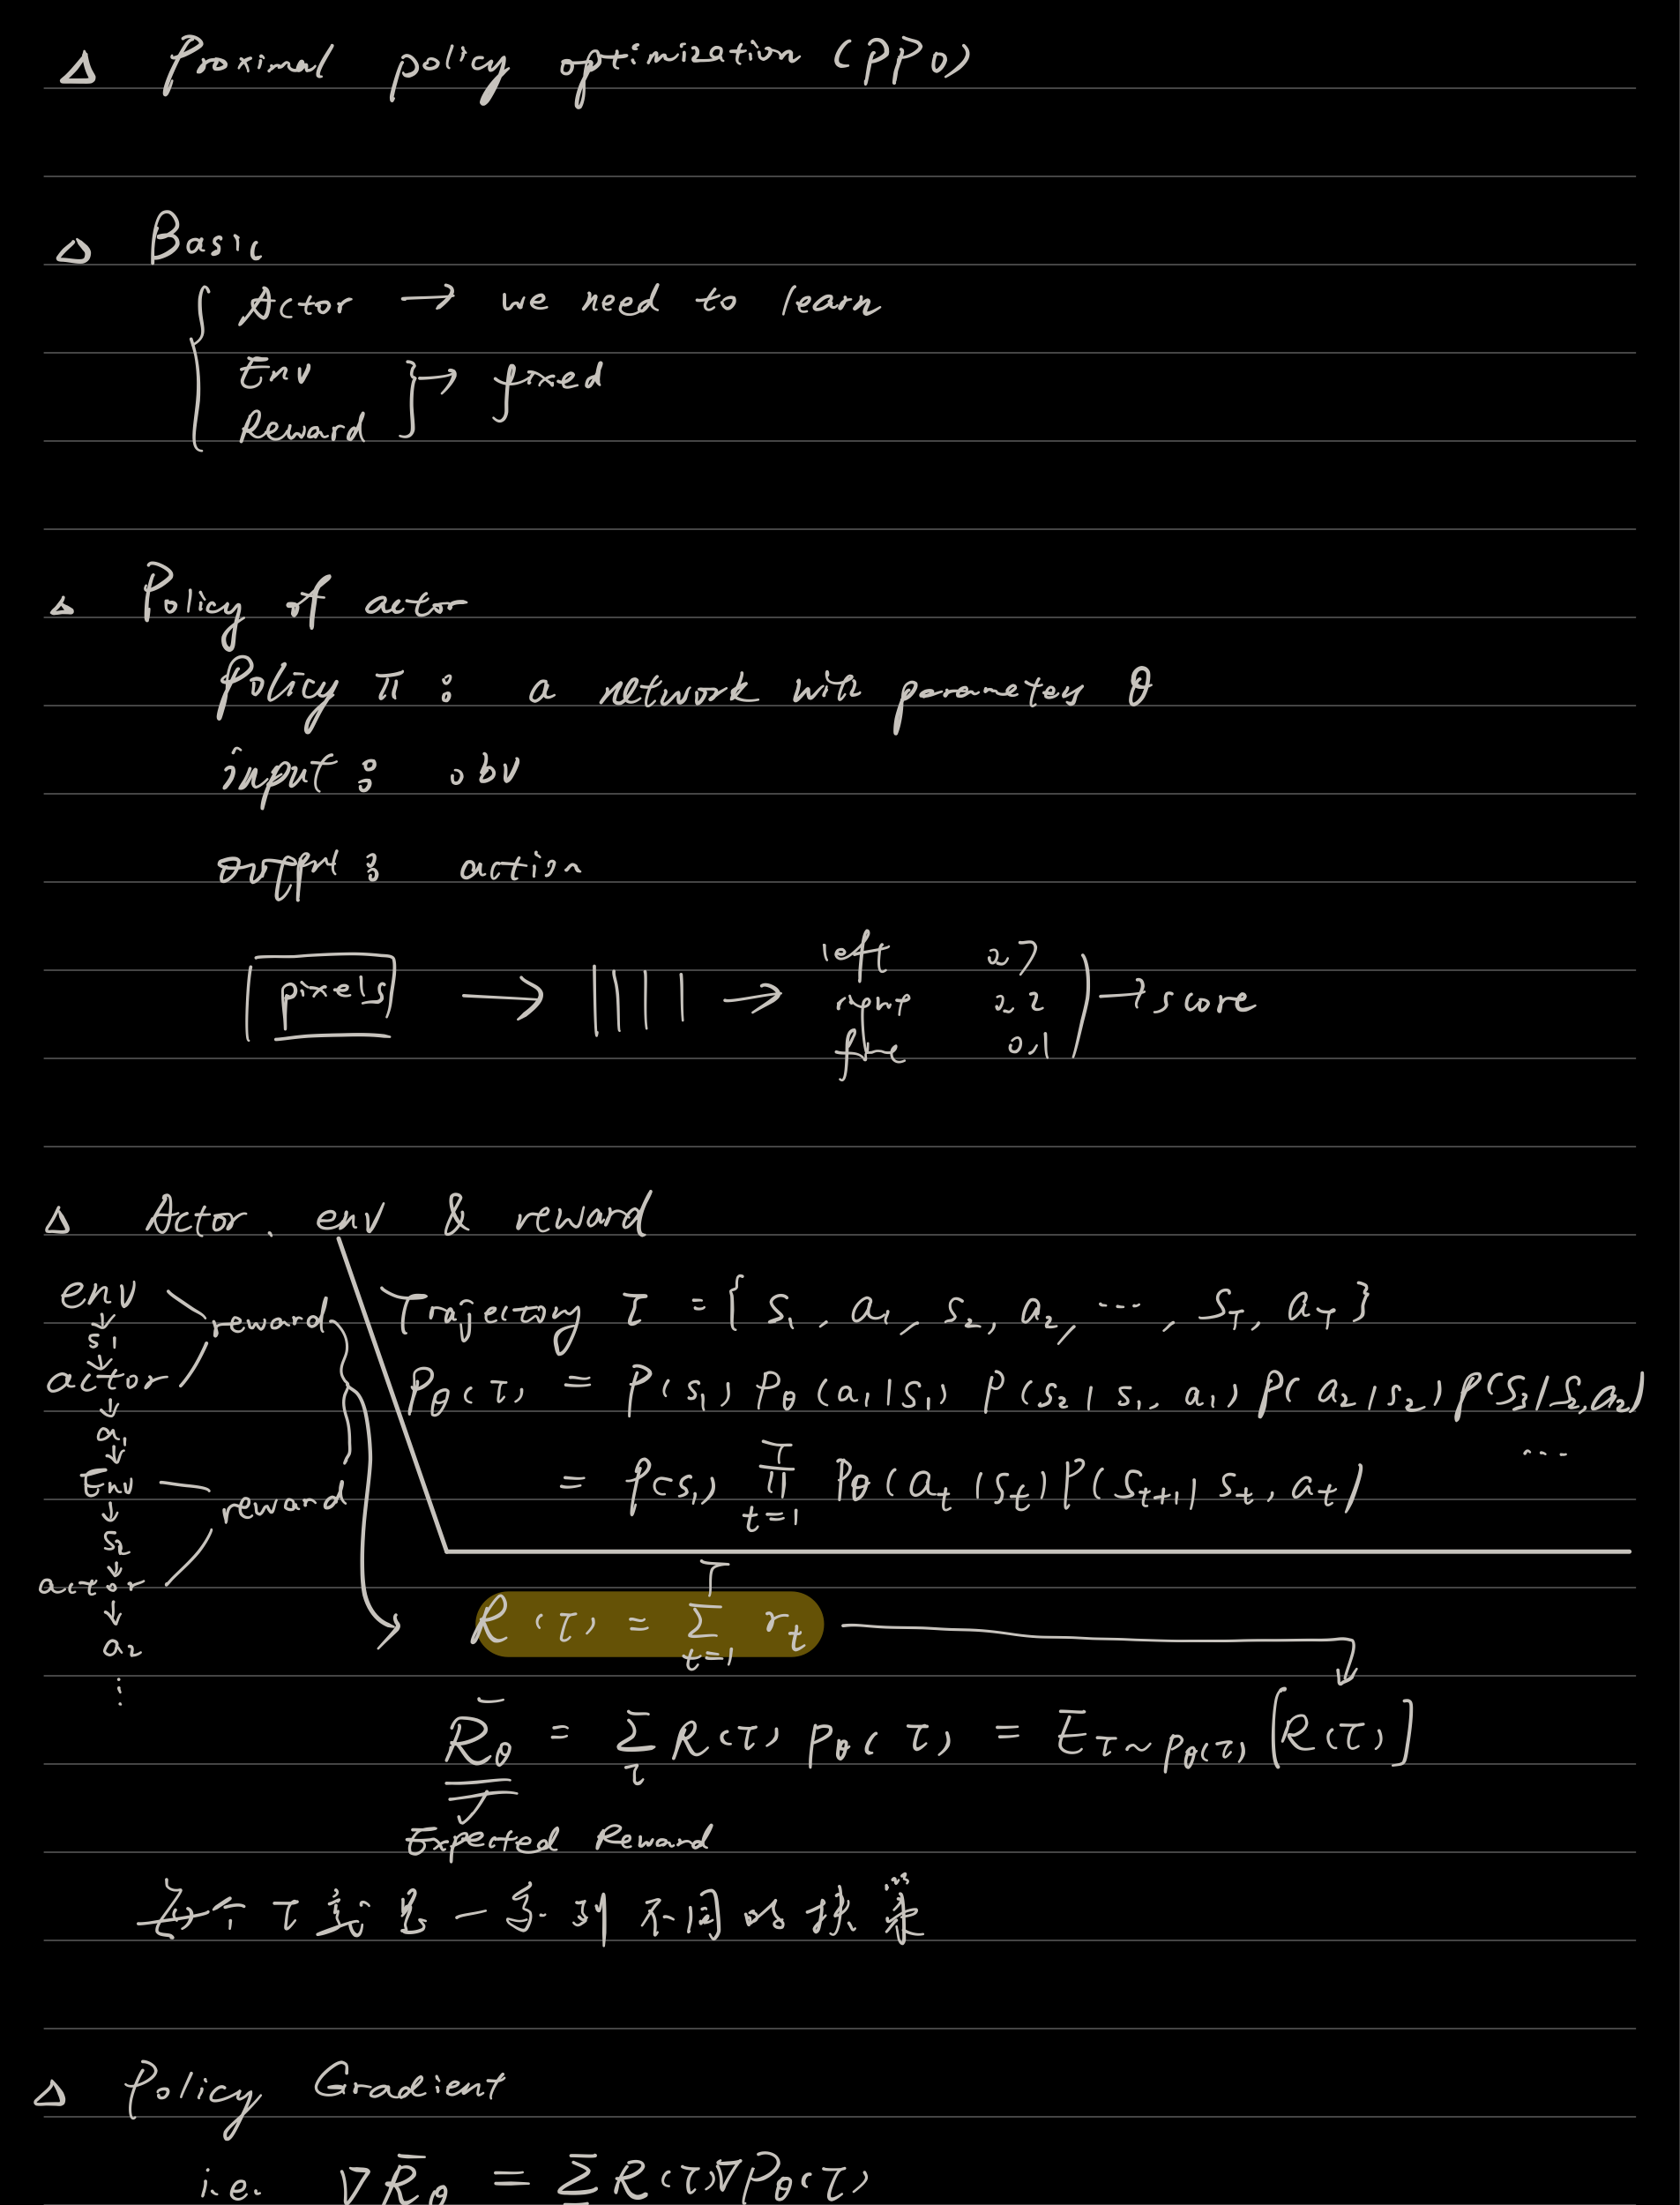 Δ Proximal policy optimization (PPO)
Δ Basic
Actor → we need to learn
Env
Reward } → fixed
Δ Policy of actor
Policy π : a network with parameters θ
input : obv
output : action
pixels → |||| → left 0.7
right 0.2
fire 0.1
→ score
Δ Actor, env & reward
env
↓
s1
↓
actor
↓
a1
↓
Env
↓
s2
↓
actor
↓
a2
⋮
reward
reward
Trajectory τ = { s1, a1, s2, a2, ..., sT, aT }
Pθ(τ) = P(s1) Pθ(a1|s1) P(s2|s1, a1) P(a2|s2) P(s3|s2,a2) ...
= P(s1) ∏_{t=1}^{T} Pθ(at|st) P(st+1|st, at)
R(τ) = Σ_{t=1}^{T} rt
R̄θ = Σ_τ R(τ) pθ(τ) = E_{τ~pθ(τ)} [R(τ)]
Expected Reward
每个 τ 一系列不同的
Δ Policy Gradient
i.e. ∇R̄θ = Σ R(τ)∇Pθ(τ)